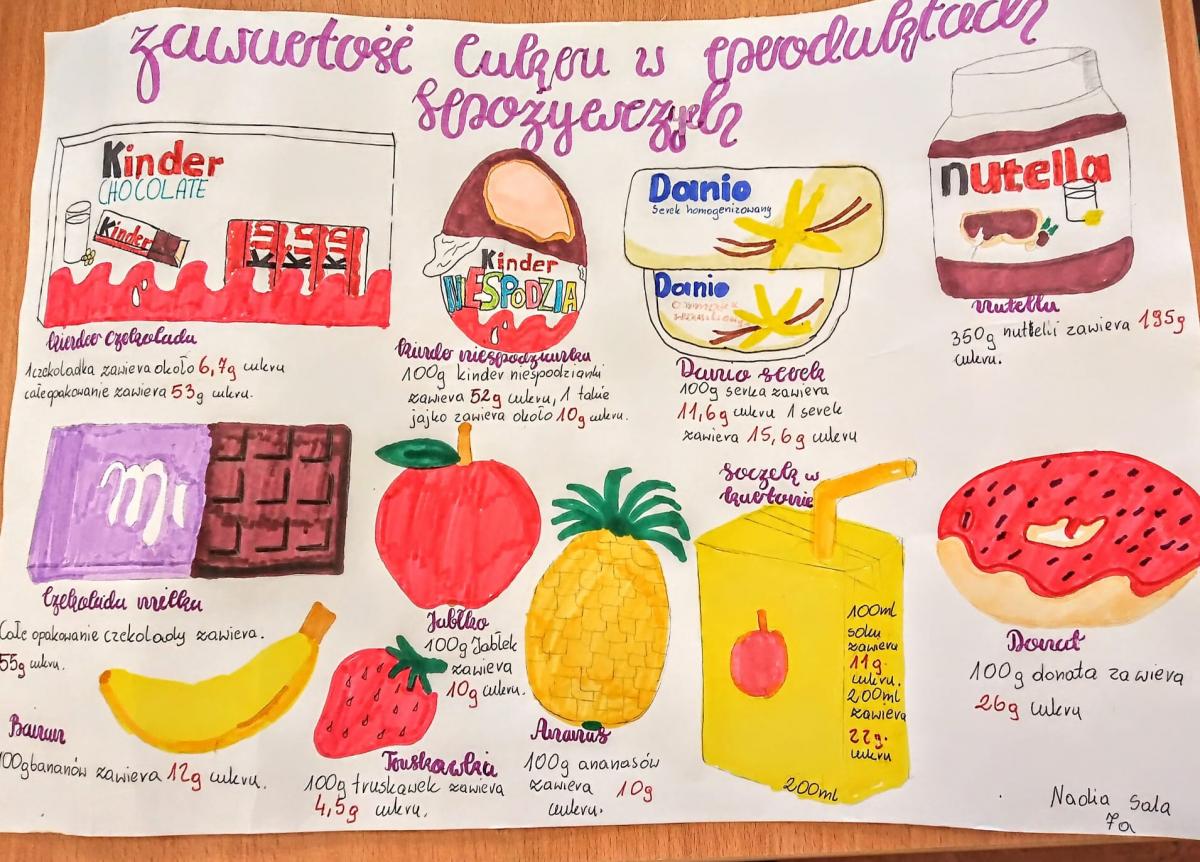 zawartość cukru w produktach
spożywczych
Kinder
CHOCOLATE
Kinder
kinder czekolada
1 czekoladka zawiera około 6,7g cukru
całe opakowanie zawiera 53g cukru.
Kinder
NIESPODZIA
kinder niespodzianka
100g kinder niespodzianki
zawiera 52g cukru, 1 takie
jajko zawiera około 10g cukru.
Danio
Serek homogenizowany
Danio
Danio serek
100g serka zawiera
11,6g cukru 1 serek
zawiera 15,6g cukru
nutella
nutella
350g nutelki zawiera 195g
cukru.
Czekolada milka
Całe opakowanie czekolady zawiera.
55g cukru.
Jabłko
100g Jabłek
zawiera
10g cukru.
soczek w
kartonie
100ml
soku
zawiera
11g.
cukru.
200ml
zawiera
22g.
cukru
200ml
Donat
100g donata zawiera
26g cukru
Banan
100g bananów zawiera 12g cukru.
Truskawka
100g truskawek zawiera
4,5g cukru.
Ananas
100g ananasów
zawiera 10g
cukru.
Nadia Sala
7a